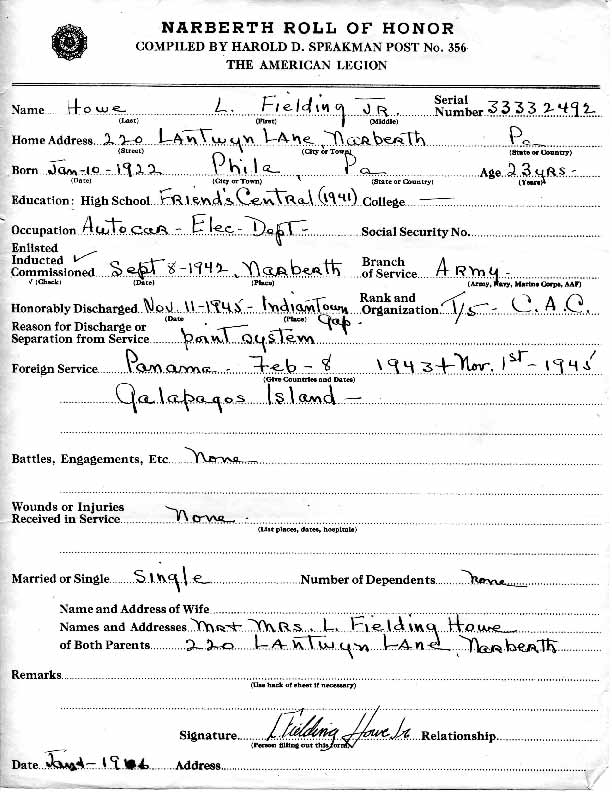 NARBERTH ROLL OF HONOR
COMPILED BY HAROLD D. SPEAKMAN POST No. 356
THE AMERICAN LEGION
Name Howe L. Fielding JR. Serial Number 33332492
(Last) (First) (Middle)
Home Address 220 LANTWYN LANE, NARBERTH Pa
(Street) (City or Town) (State or Country)
Born Jan-10-1922 Phila, Pa Age 23 yrs-
(Date) (City or Town) (State or Country) (Years)
Education: High School FRIEND'S CENTRAL (1941) College —
Occupation AUTOCAR - Elec- Dept- Social Security No.
Enlisted
Inducted ✓
Commissioned Sept 8-1942, NARBERTH Branch of Service ARMY-
√ (Check) (Date) (Place) (Army, Navy, Marine Corps, AAF)
Honorably Discharged Nov. 11-1945- IndianTown Gap. Rank and Organization T/5 - C.A.C.
(Date (Place)
Reason for Discharge or
Separation from Service point system
Foreign Service Panama - Feb-8 1943 + Nov. 1st-1945
(Give Countries and Dates)
Galapagos Island —
Battles, Engagements, Etc None-
Wounds or Injuries
Received in Service None-
(List places, dates, hospitals)
Married or Single Single Number of Dependents None
Name and Address of Wife
Names and Addresses MR + MRS. L. Fielding Howe
of Both Parents 220 LANTWYN LANE, NARBERTH
Remarks
(Use back of sheet if necessary)
Signature L Fielding Howe Jr Relationship
(Person filling out this form)
Date Address